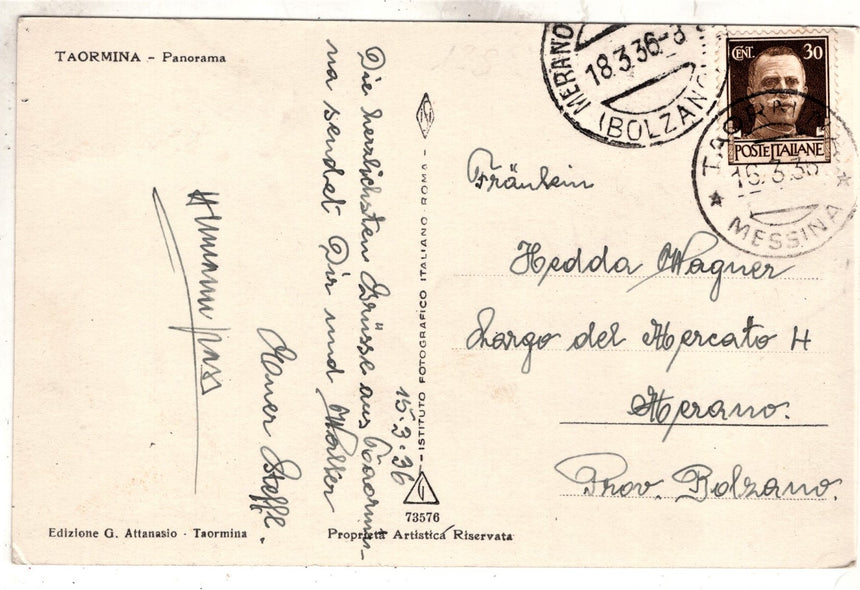 TAORMINA - Panorama
Die herzlichsten Grüsse aus Taormi-
na sendet Dir und Walter
Euer Steffl.
15.3.36
- ISTITUTO FOTOGRAFICO ITALIANO ROMA -
73576
Edizione G. Attanasio - Taormina
Proprietà Artistica Riservata
MERANO
18.3.36-8
(BOLZANO)
CENT. 30
POSTE ITALIANE
TAORMINA
16.3.36
MESSINA
Fräulein
Hedda Wagner
Largo del Mercato 4
Merano.
Prov. Bolzano.